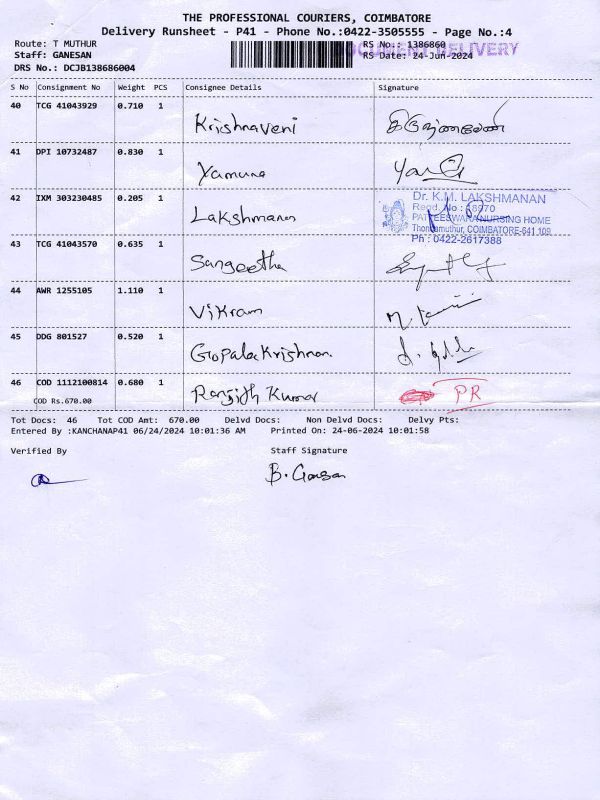 THE PROFESSIONAL COURIERS, COIMBATORE
Delivery Runsheet - P41 - Phone No.:0422-3505555 - Page No.:4
DOCUMENT DELIVERY
Route: T MUTHUR RS No.: 1386860
Staff: GANESAN RS Date: 24-Jun-2024
DRS No.: DCJB138686004
S No Consignment No Weight PCS Consignee Details Signature
40 TCG 41043929 0.710 1 Krishnaveni
41 DPI 10732487 0.830 1 Yamuna
42 IXM 303230485 0.205 1 Lakshmanan
Dr. K.M. LAKSHMANAN
PATTEESWARA NURSING HOME
Thondamuthur, COIMBATORE-641 109
Ph : 0422-2617388
43 TCG 41043570 0.635 1 Sangeetha
44 AWR 1255105 1.110 1 Vikram
45 DDG 801527 0.520 1 Gopalakrishnan
46 COD 1112100814 0.680 1 Ranjith Kumar PR
COD Rs.670.00
Tot Docs: 46 Tot COD Amt: 670.00 Delvd Docs: Non Delvd Docs: Delvy Pts:
Entered By :KANCHANAP41 06/24/2024 10:01:36 AM Printed On: 24-06-2024 10:01:58
Verified By Staff Signature